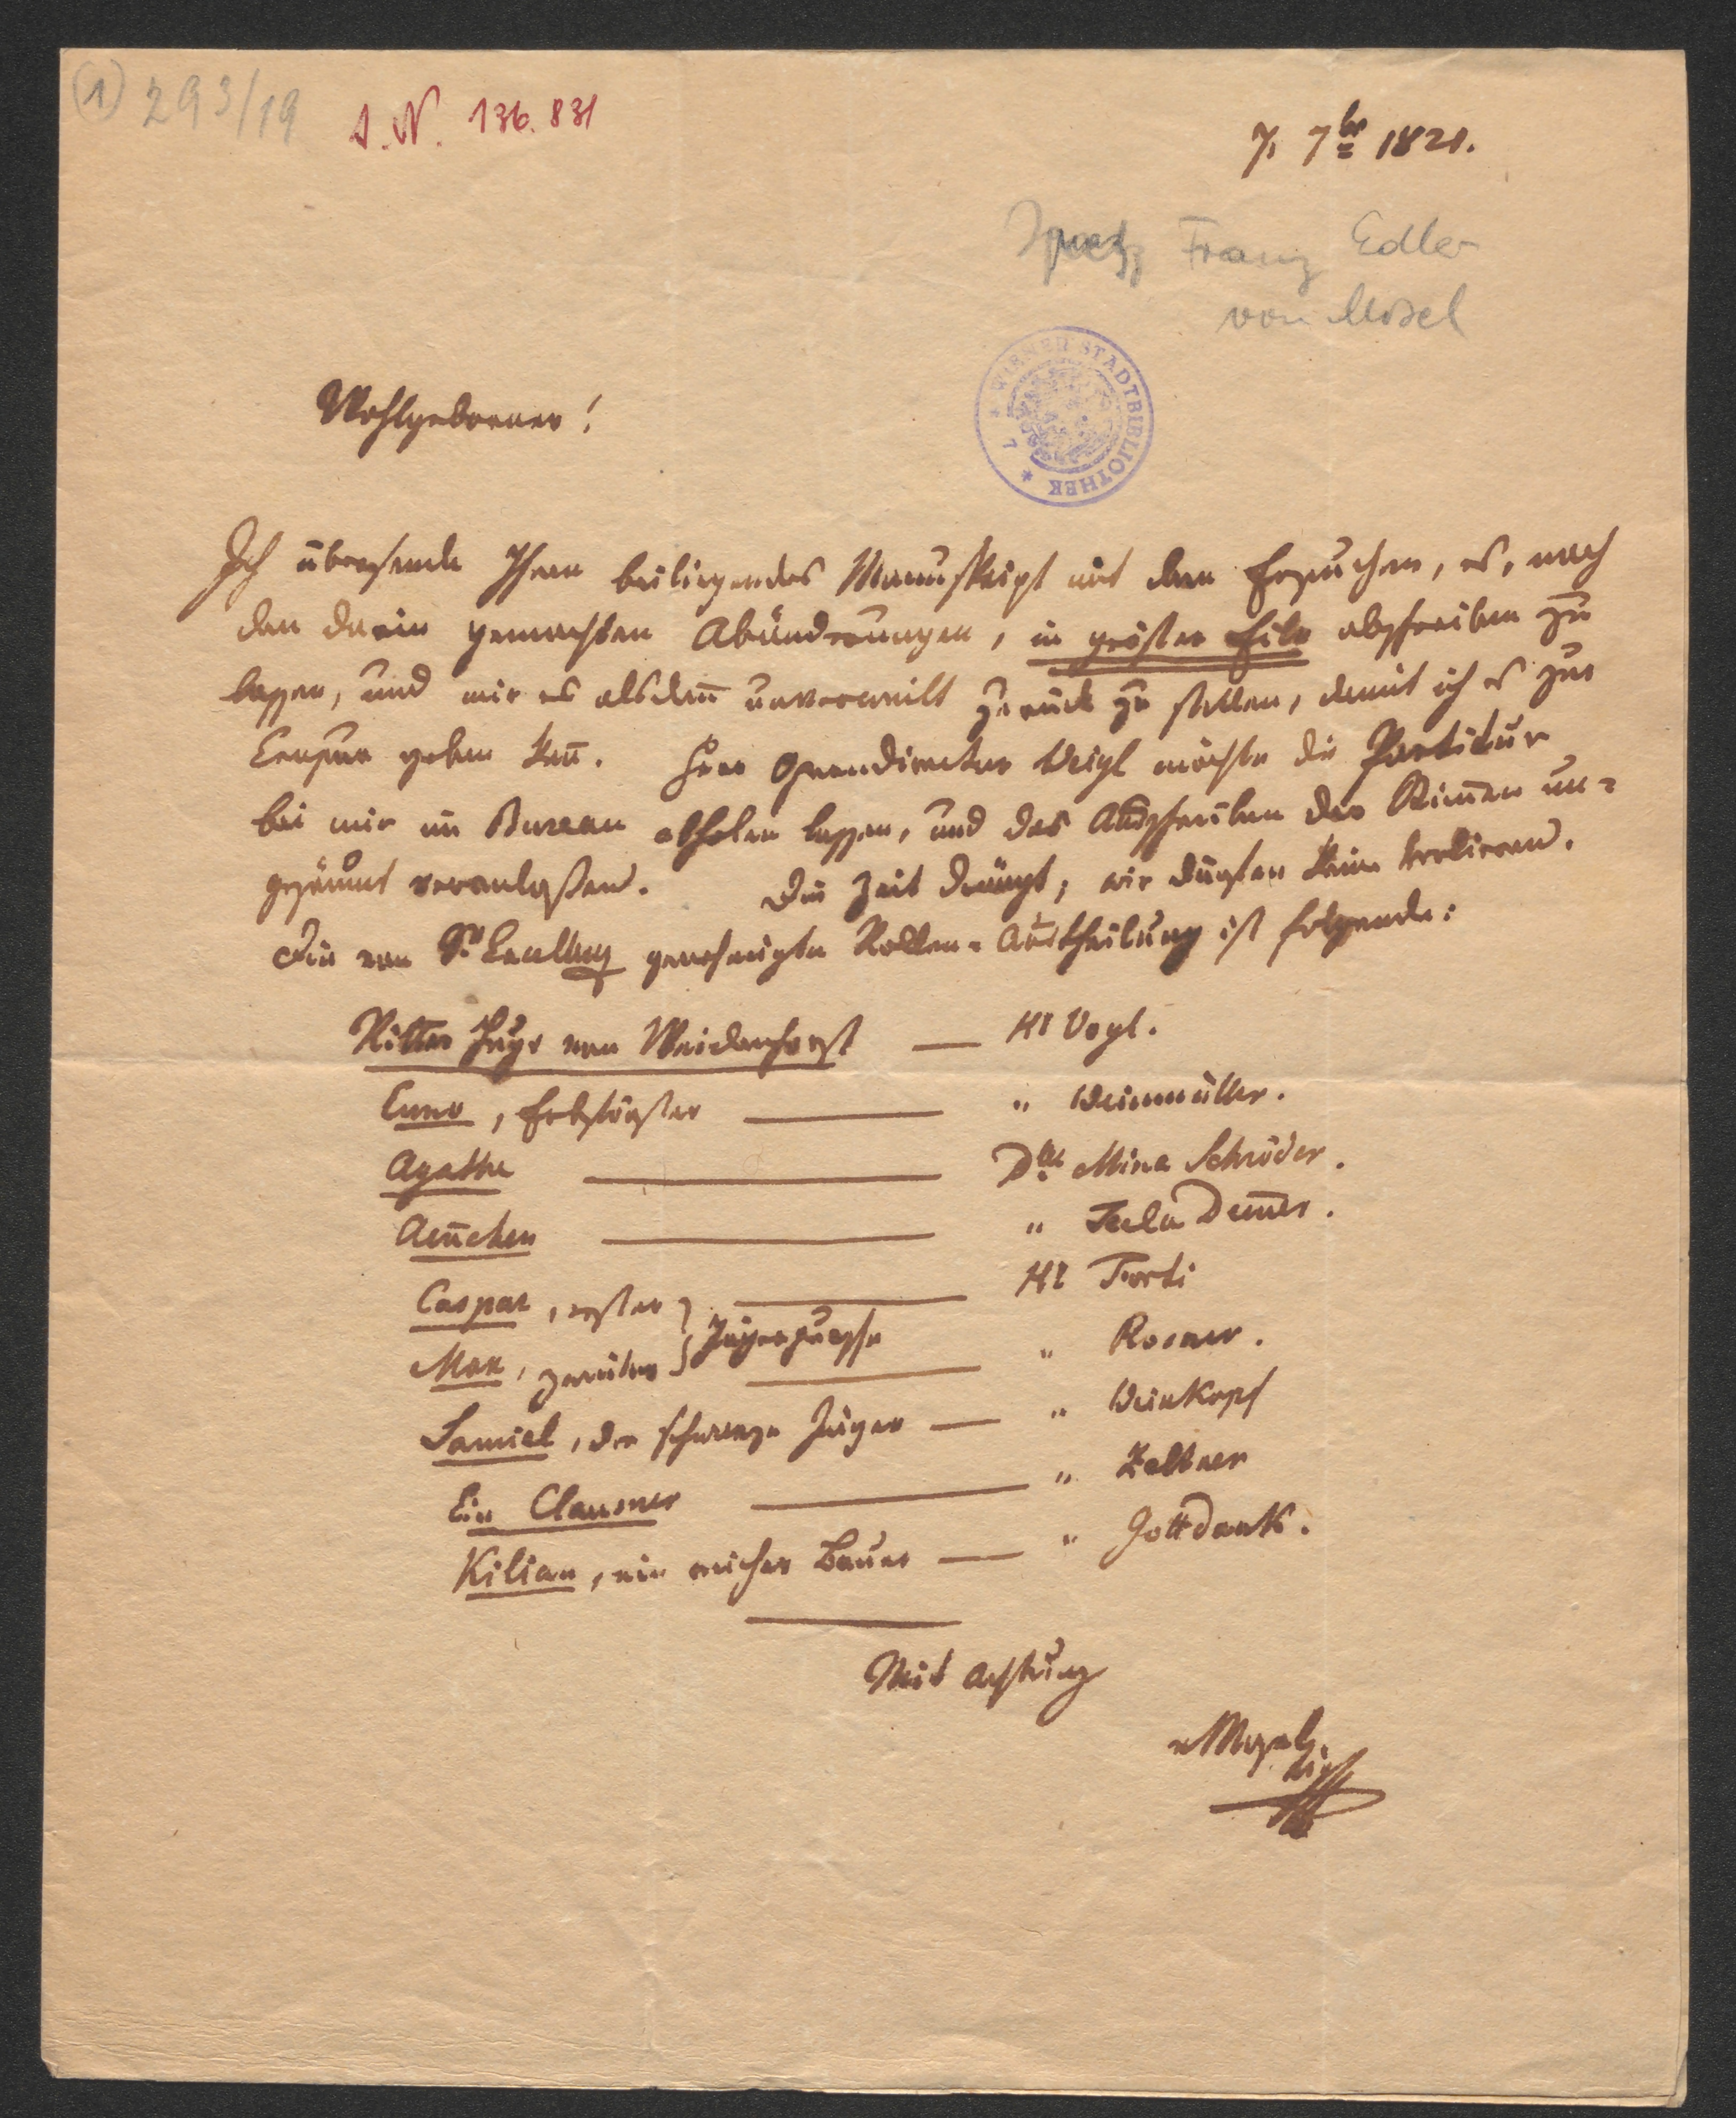 (1) 293/19
J. N. 136.831
7. 7br 1821.
Ignaz Franz Edler
von Mosel
* WIENER STADTBIBLIOTHEK * 7
Wohlgeborner!
Ich übersende Ihnen beiliegendes Manuskript mit dem Ersuchen, es, nach
den darin gemachten Abändrungen, in größter Eile abschreiben zu
lassen, und mir es alsdañ unverweilt zurück zu stellen, damit ich es zur
Censur geben kañ. Herr Operndirector Weigl möchte die Partitur
bei mir im Bureau abholen lassen, und das Ausschreiben der Stim̄en un-
gesäumt veranlaßen. Die Zeit drängt, wir dürfen keine verlieren.
Die von Sr Excellenz genehmigte Rollen-Austheilung ist folgende:
Ritter Hugo von Weidenhorst — Hr Vogl.
Cuno, Erbförster — " Weinmüller.
Agathe — Dlle Mina Schröder.
Aeñchen — " Tecla Dem̄er.
Caspar, erster } — Hr Forti
Max, zweiter } Jägerpursche — " Rosner.
Samiel, der schwarze Jäger — " Weinkopf
Ein Clausner — " Zeltner
Kilian, ein reicher Bauer — " Gottdank.
Mit Achtung
vMosel